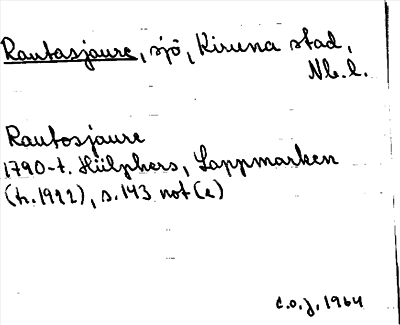 Rautasjaure, sjö, Kiruna stad,
Nb. l.
Rautosjaure
1790-t. Hülphers, Lappmarken
(tr. 1922), s. 143 not (e)
c.o.j. 1964